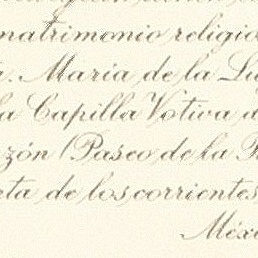 matrimonio religio
. María de la Lu
la Capilla Votiva d
zón (Paseo de la R
eta de los corrientes,
Méxi